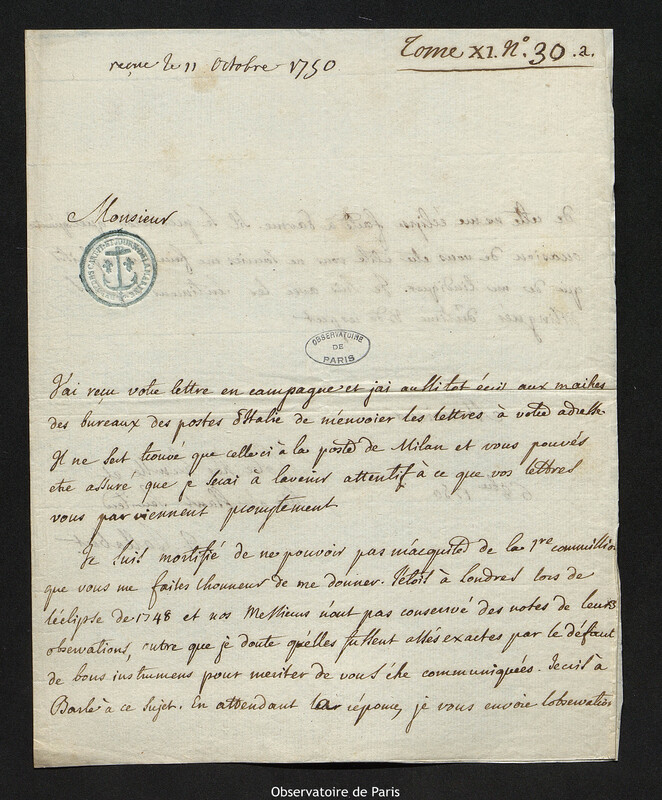 reçue le 11 Octobre 1750
Tome XI. N.º 30.a.
Monsieur
OBSERVATOIRE
DE
PARIS
J'ai reçu votre lettre en campagne et jai aussitot écrit aux maitres
des bureaux des postes d'Italie de m'envoier les lettres à votre adresse.
Il ne sest trouvé que celle ci à la poste de Milan et vous pouvés
etre assuré que je serai à lavenir attentif à ce que vos lettres
vous parviennent promptement
Je suis mortifié de ne pouvoir pas m'acquiter de la 1re commission
que vous me faites lhonneur de me donner. J'etois à Londres lors de
léclipse de 1748 et nos Messieurs n'ont pas conservé des notes de leurs
observations, outre que je doute qu'elles fussent assés exactes par le défaut
de bons instrumens pour meriter de vous etre communiquées. Jecris à
Basle à ce sujet. En attendant la réponse, je vous envoie lobservation
Observatoire de Paris